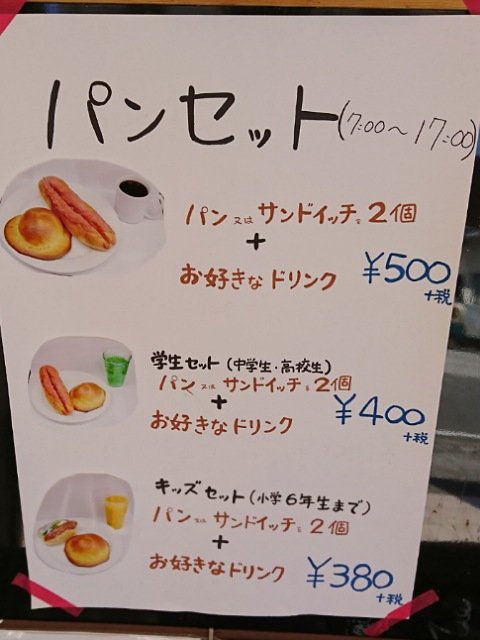 パンセット(7:00～17:00)
パン又はサンドイッチを2個
+
お好きなドリンク
¥500
+税
学生セット(中学生・高校生)
パン又はサンドイッチを2個
+
お好きなドリンク
¥400
+税
キッズセット(小学6年生まで)
パン又はサンドイッチを2個
+
お好きなドリンク
¥380
+税